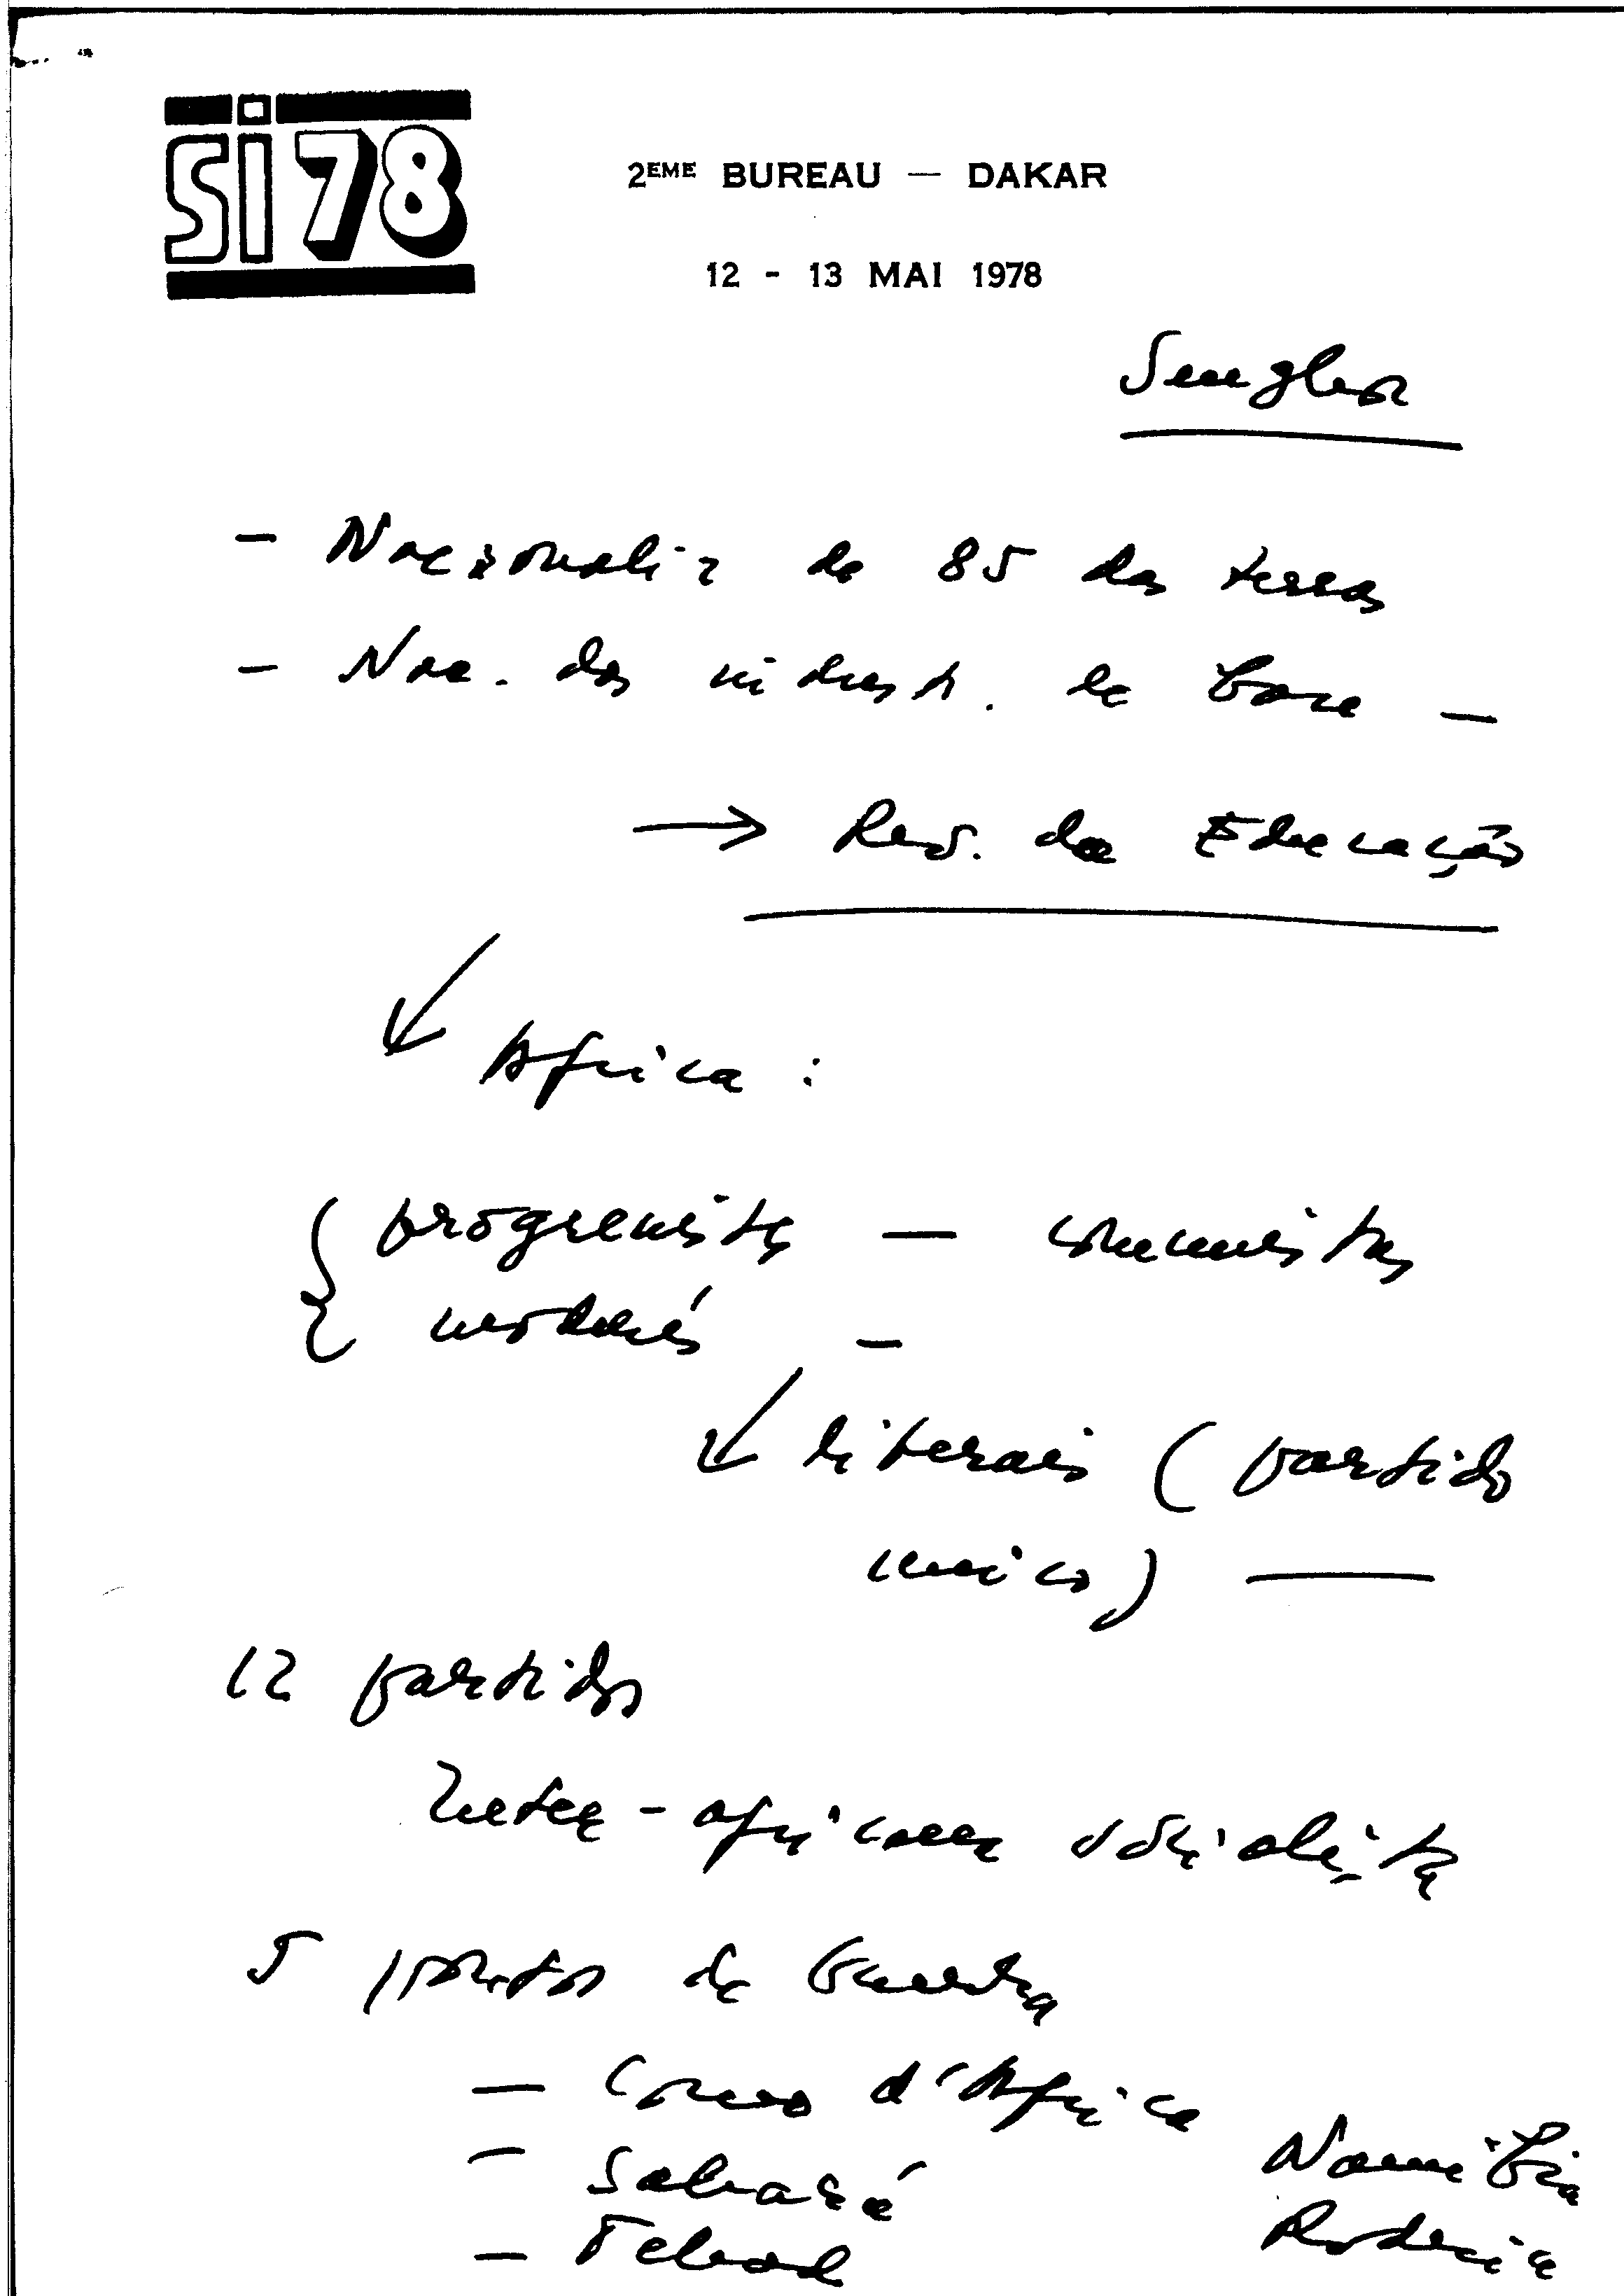 si 78
2EME BUREAU — DAKAR
12 - 13 MAI 1978
Senghor
- Nacionaliz de 85 das terras
- Nac. das indust. de base —
→ Rev. da Educação
África :
progressistas — comunistas
moderés -
liberais (partido
unico) —
12 partidos
Inter-africana socialista
5 pontos de Guerra
- Corno d'Africa
Namibia
- Sahará
Rodesia
- Tchad